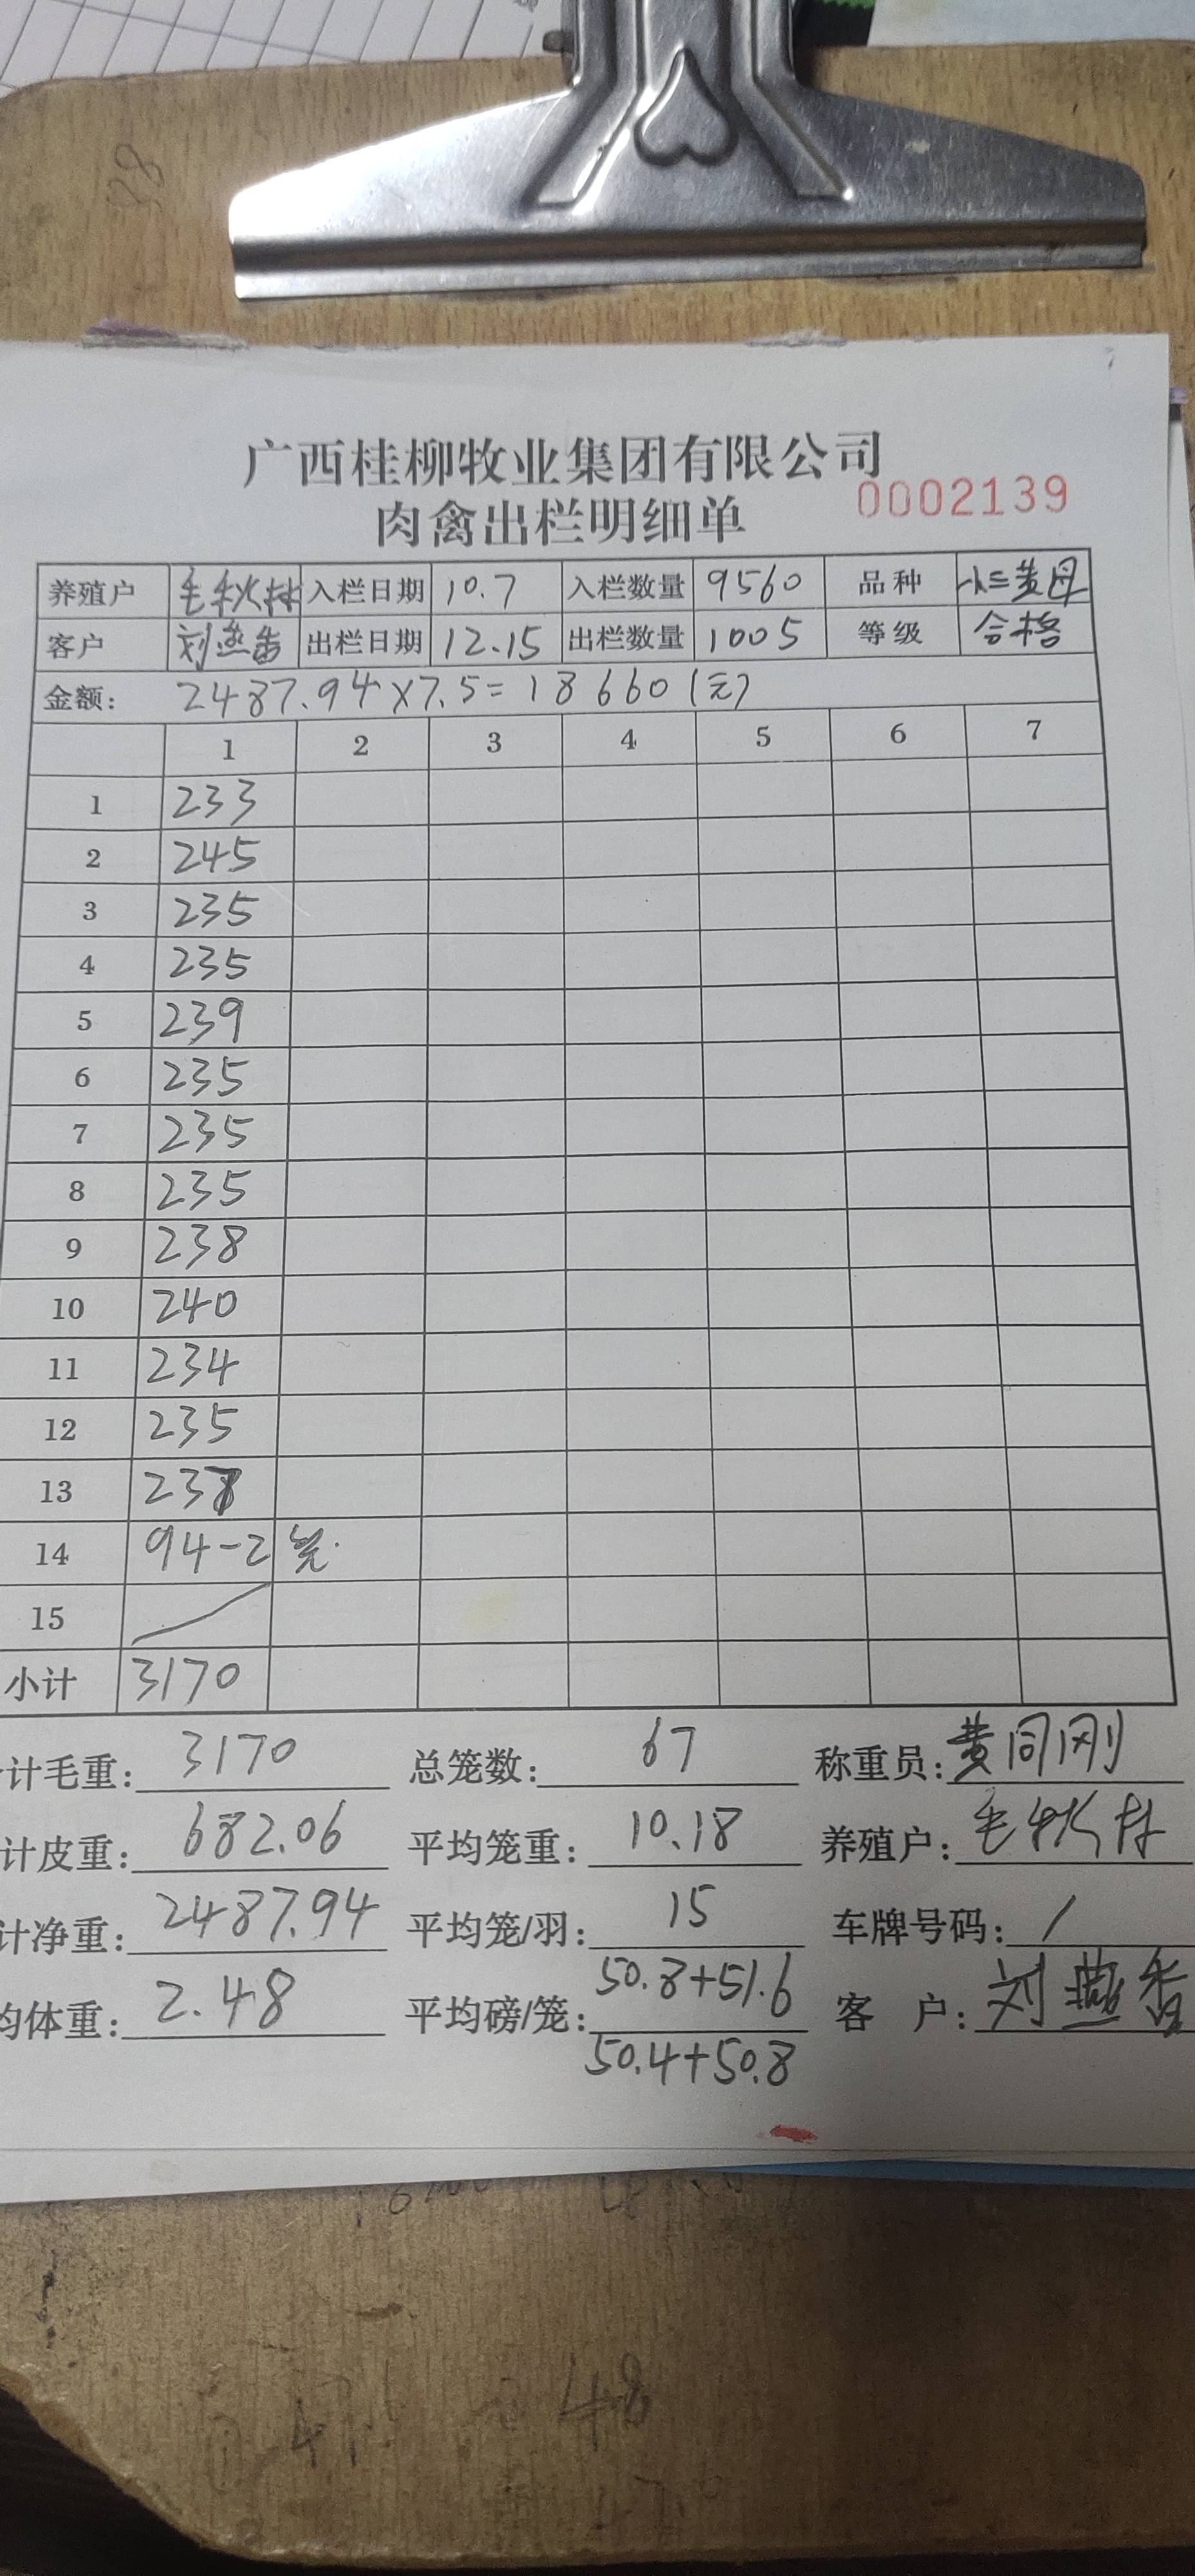 广西桂柳牧业集团有限公司
肉禽出栏明细单 0002139
养殖户 毛秋林 入栏日期 10.7 入栏数量 9560 品种 小三黄母
客户 刘燕香 出栏日期 12.15 出栏数量 1005 等级 合格
金额: 2487.94×7.5=18660(元)
1 2 3 4 5 6 7
1 233
2 245
3 235
4 235
5 239
6 235
7 235
8 235
9 238
10 240
11 234
12 235
13 237
14 94-2笼.
15
小计 3170
计毛重: 3170 总笼数: 67 称重员: 黄同刚
计皮重: 682.06 平均笼重: 10.18 养殖户: 毛秋林
计净重: 2487.94 平均笼/羽: 15 车牌号码: /
均体重: 2.48 平均磅/笼: 50.8+51.6 客户: 刘燕香
50.4+50.8
48